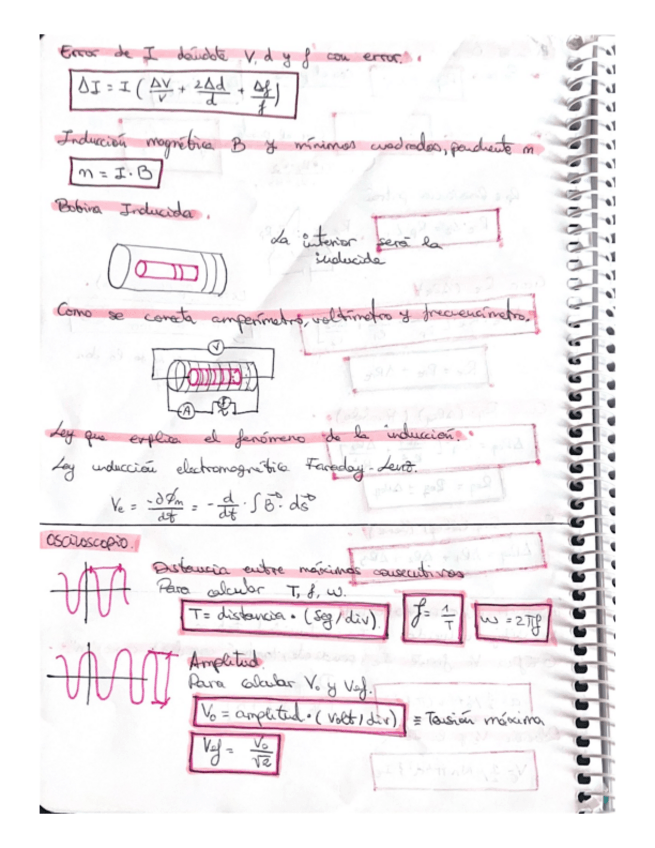 Error de I dándote V, d y f con error.
ΔI = I ( ΔV/V + 2Δd/d + Δf/f )
Inducción magnética B y mínimos cuadrados, pendiente m
m = I · B
Bobina Inducida.
La interior será la
inducida
Como se conecta amperímetro, voltímetro y frecuencímetro.
V
A
f
Ley que explica el fenómeno de la inducción.
Ley inducción electromagnética Faraday-Lenz.
Ve = -∂Φm/dt = - d/dt · ∫ B · ds
OSCILOSCOPIO.
Distancia entre máximos consecutivos
Para calcular T, f, w.
T = distancia · (Seg/div)
f = 1/T
w = 2πf
Amplitud
Para calcular Vo y Vef.
Vo = amplitud · (Volt/div) ≡ Tensión máxima
Vef = Vo/√2